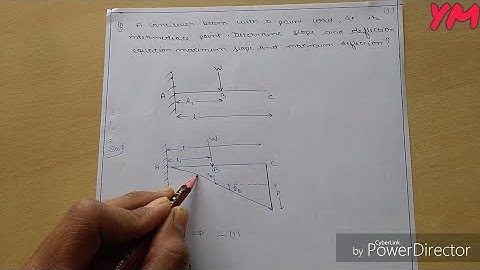 YM
(1)
Q A cantilever beam with a point load at its
intermediate point. Determine slope and deflection
equation maximum slope and maximum deflection?
W
A B C
l₁
l
Sol
l
l₁ W
A B C
θB
— (1)
CyberLink
by PowerDirector